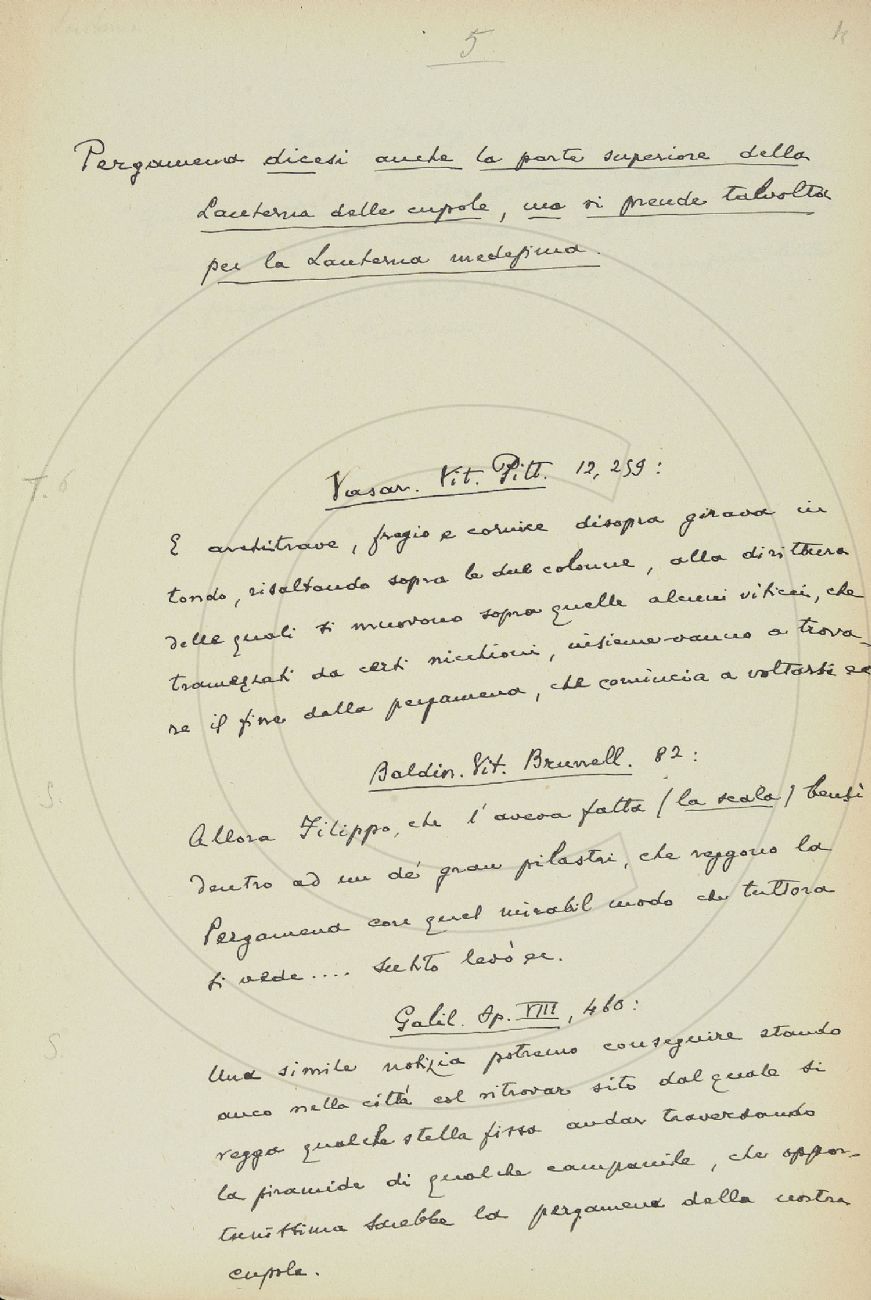 5
Pergamena dicesi anche la parte superiore della
Lanterna delle cupole, ma si prende talvolta
per la Lanterna medesima.
T. 6
Vasar. Vit. Pitt. 12, 259:
E architrave, fregio e cornice disopra girava in
tondo, risaltando sopra le due colonne, alla dirittura
delle quali si muovono sopra quelle alcuni viticci, che
tramezzati da certi nicchioni, insieme vanno a trova-
re il fine della pergamena, che comincia a voltarsi ec
Baldin. Vit. Brunell. 82:
S.
Allora Filippo, che l'aveva fatta (la scala) bensì
dentro ad un de' gran pilastri, che reggono la
Pergamena con quel mirabil modo che tuttora
si vede.... subito levò ec.
Galil. Op. VIII, 460:
S.
Una simile notizia potremo conseguire stando
anco nella città col ritrovar sito dal quale si
vegga qualche stella fissa andar traversando
la piramide di qualche campanile, che oppor-
tunissima sarebbe la pergamena della nostra
cupola.